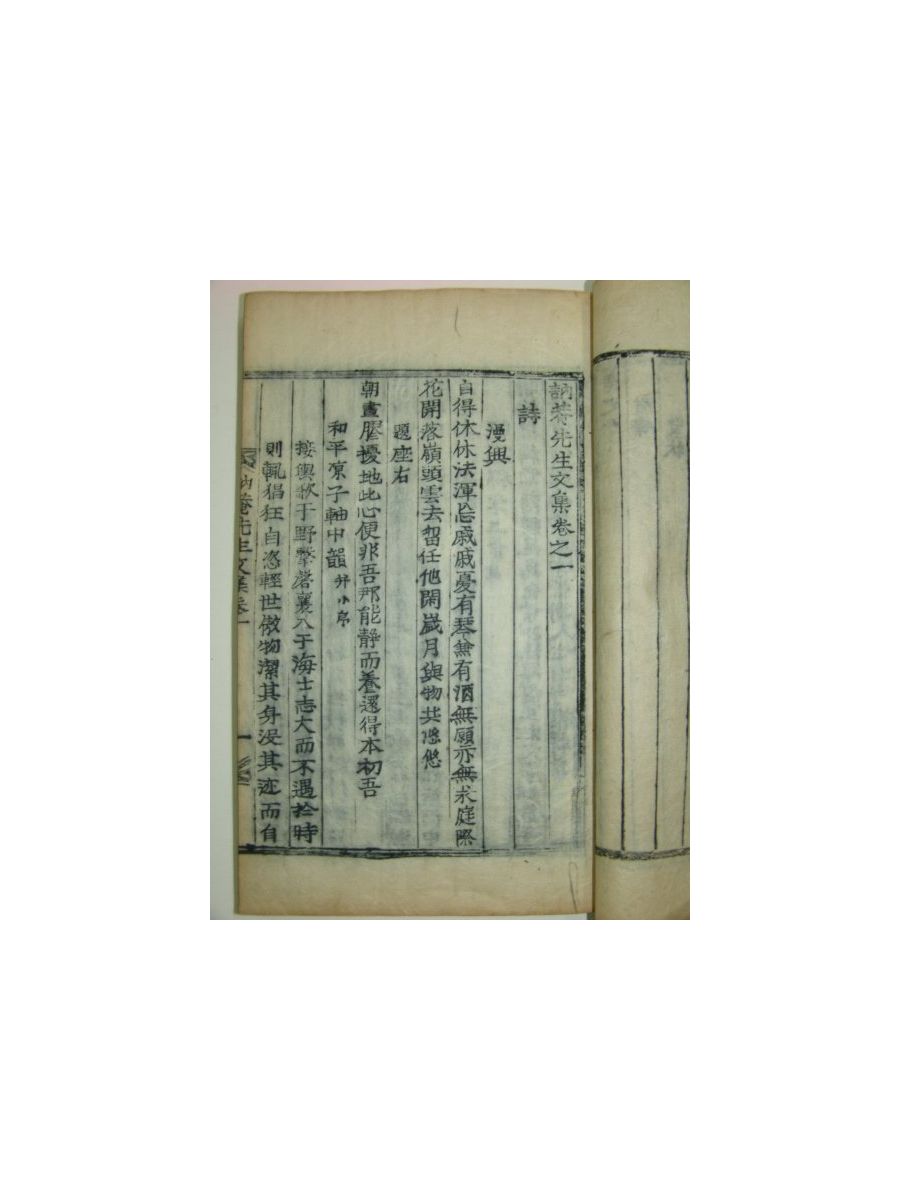 訥菴先生文集卷之一
詩
漫興
自得休休法渾忘戚戚憂有琴兼有酒無願亦無求庭際
花開落嶺頭雲去留任他閑歲月與物共悠悠
題座右
朝晝膠擾地此心便非吾那能靜而養還得本初吾
和平凉子軸中韻 并小序
接輿歌于野擊磬襄入于海士志大而不遇於時
則輒猖狂自恣輕世傲物潔其身沒其迹而自
訥菴先生文集卷一 一